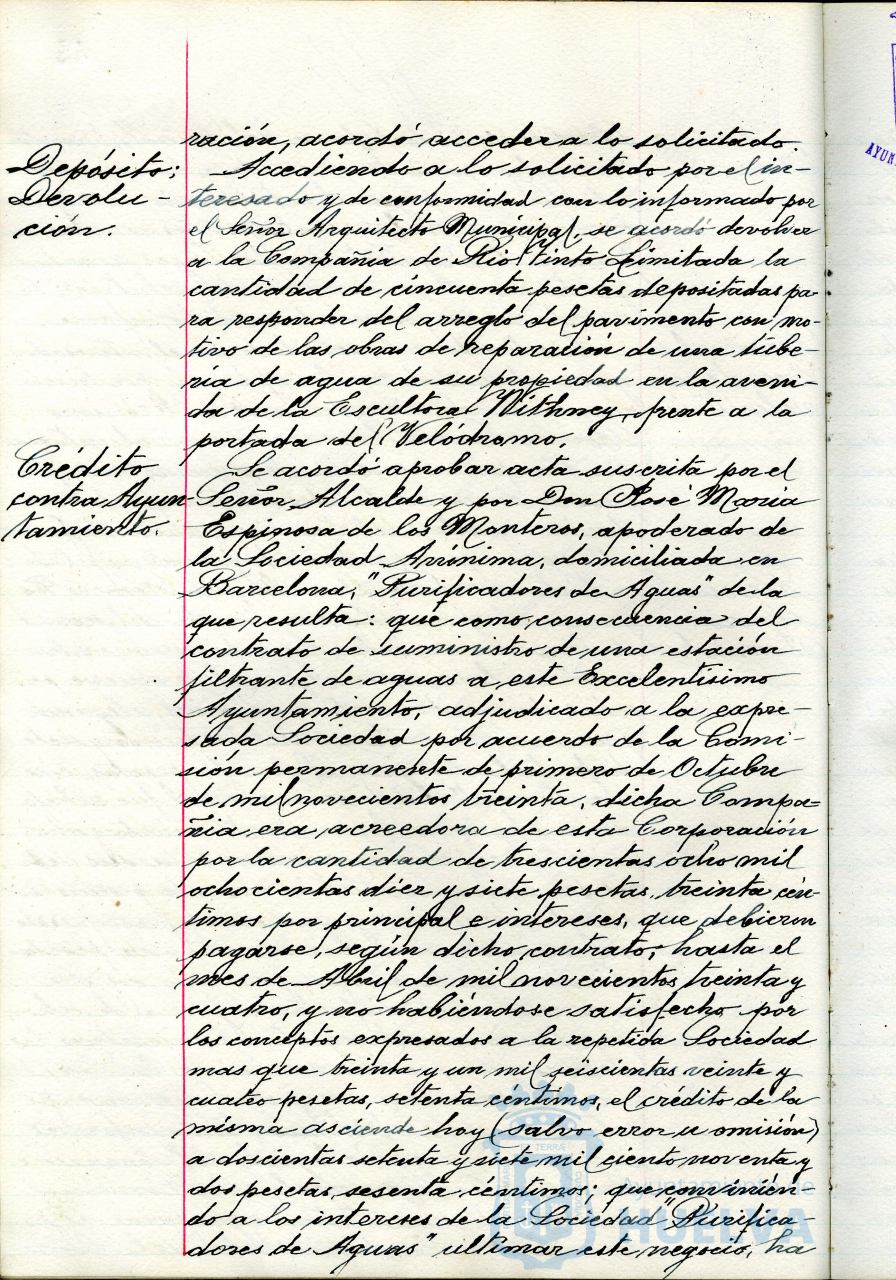 ración, acordó acceder a lo solicitado.
Depósito:
Devolu-
ción.
Accediendo a lo solicitado por el in-
teresado y de conformidad con lo informado por
el Señor Arquitecto Municipal, se acordó devolver
a la Compañia de Rio Tinto Limitada la
cantidad de cincuenta pesetas depositadas pa-
ra responder del arreglo del pavimento con mo-
tivo de las obras de reparación de una tube-
ria de agua de su propiedad en la aveni-
da de la Escultora Withney, frente a la
portada del Velódromo.
Crédito
contra Ayun-
tamiento.
Se acordó aprobar acta suscrita por el
Señor Alcalde y por Don José Maria
Espinosa de los Monteros, apoderado de
la Sociedad Anónima, domiciliada en
Barcelona, "Purificadores de Aguas" de la
que resulta: que como consecuencia del
contrato de suministro de una estación
filtrante de aguas a este Excelentisimo
Ayuntamiento, adjudicado a la expre-
sada Sociedad por acuerdo de la Comi-
sión permanente de primero de Octubre
de mil novecientos treinta, dicha Compa-
ñia era acreedora de esta Corporación
por la cantidad de trescientas ocho mil
ochocientas diez y siete pesetas, treinta cén-
timos por principal e intereses, que debieron
pagarse, según dicho contrato, hasta el
mes de Abril de mil novecientos treinta y
cuatro, y no habiéndose satisfecho por
los conceptos expresados a la repetida Sociedad
mas que treinta y un mil seiscientas veinte y
cuatro pesetas, setenta centimos, el crédito de la
misma asciende hoy (salvo error u omisión)
a doscientas setenta y siete mil ciento noventa y
dos pesetas, sesenta céntimos; que convinien
do a los intereses de la Sociedad "Purifica-
dores de Aguas" ultimar este negocio, ha
Ayuntamiento de
HUELVA
AYUN